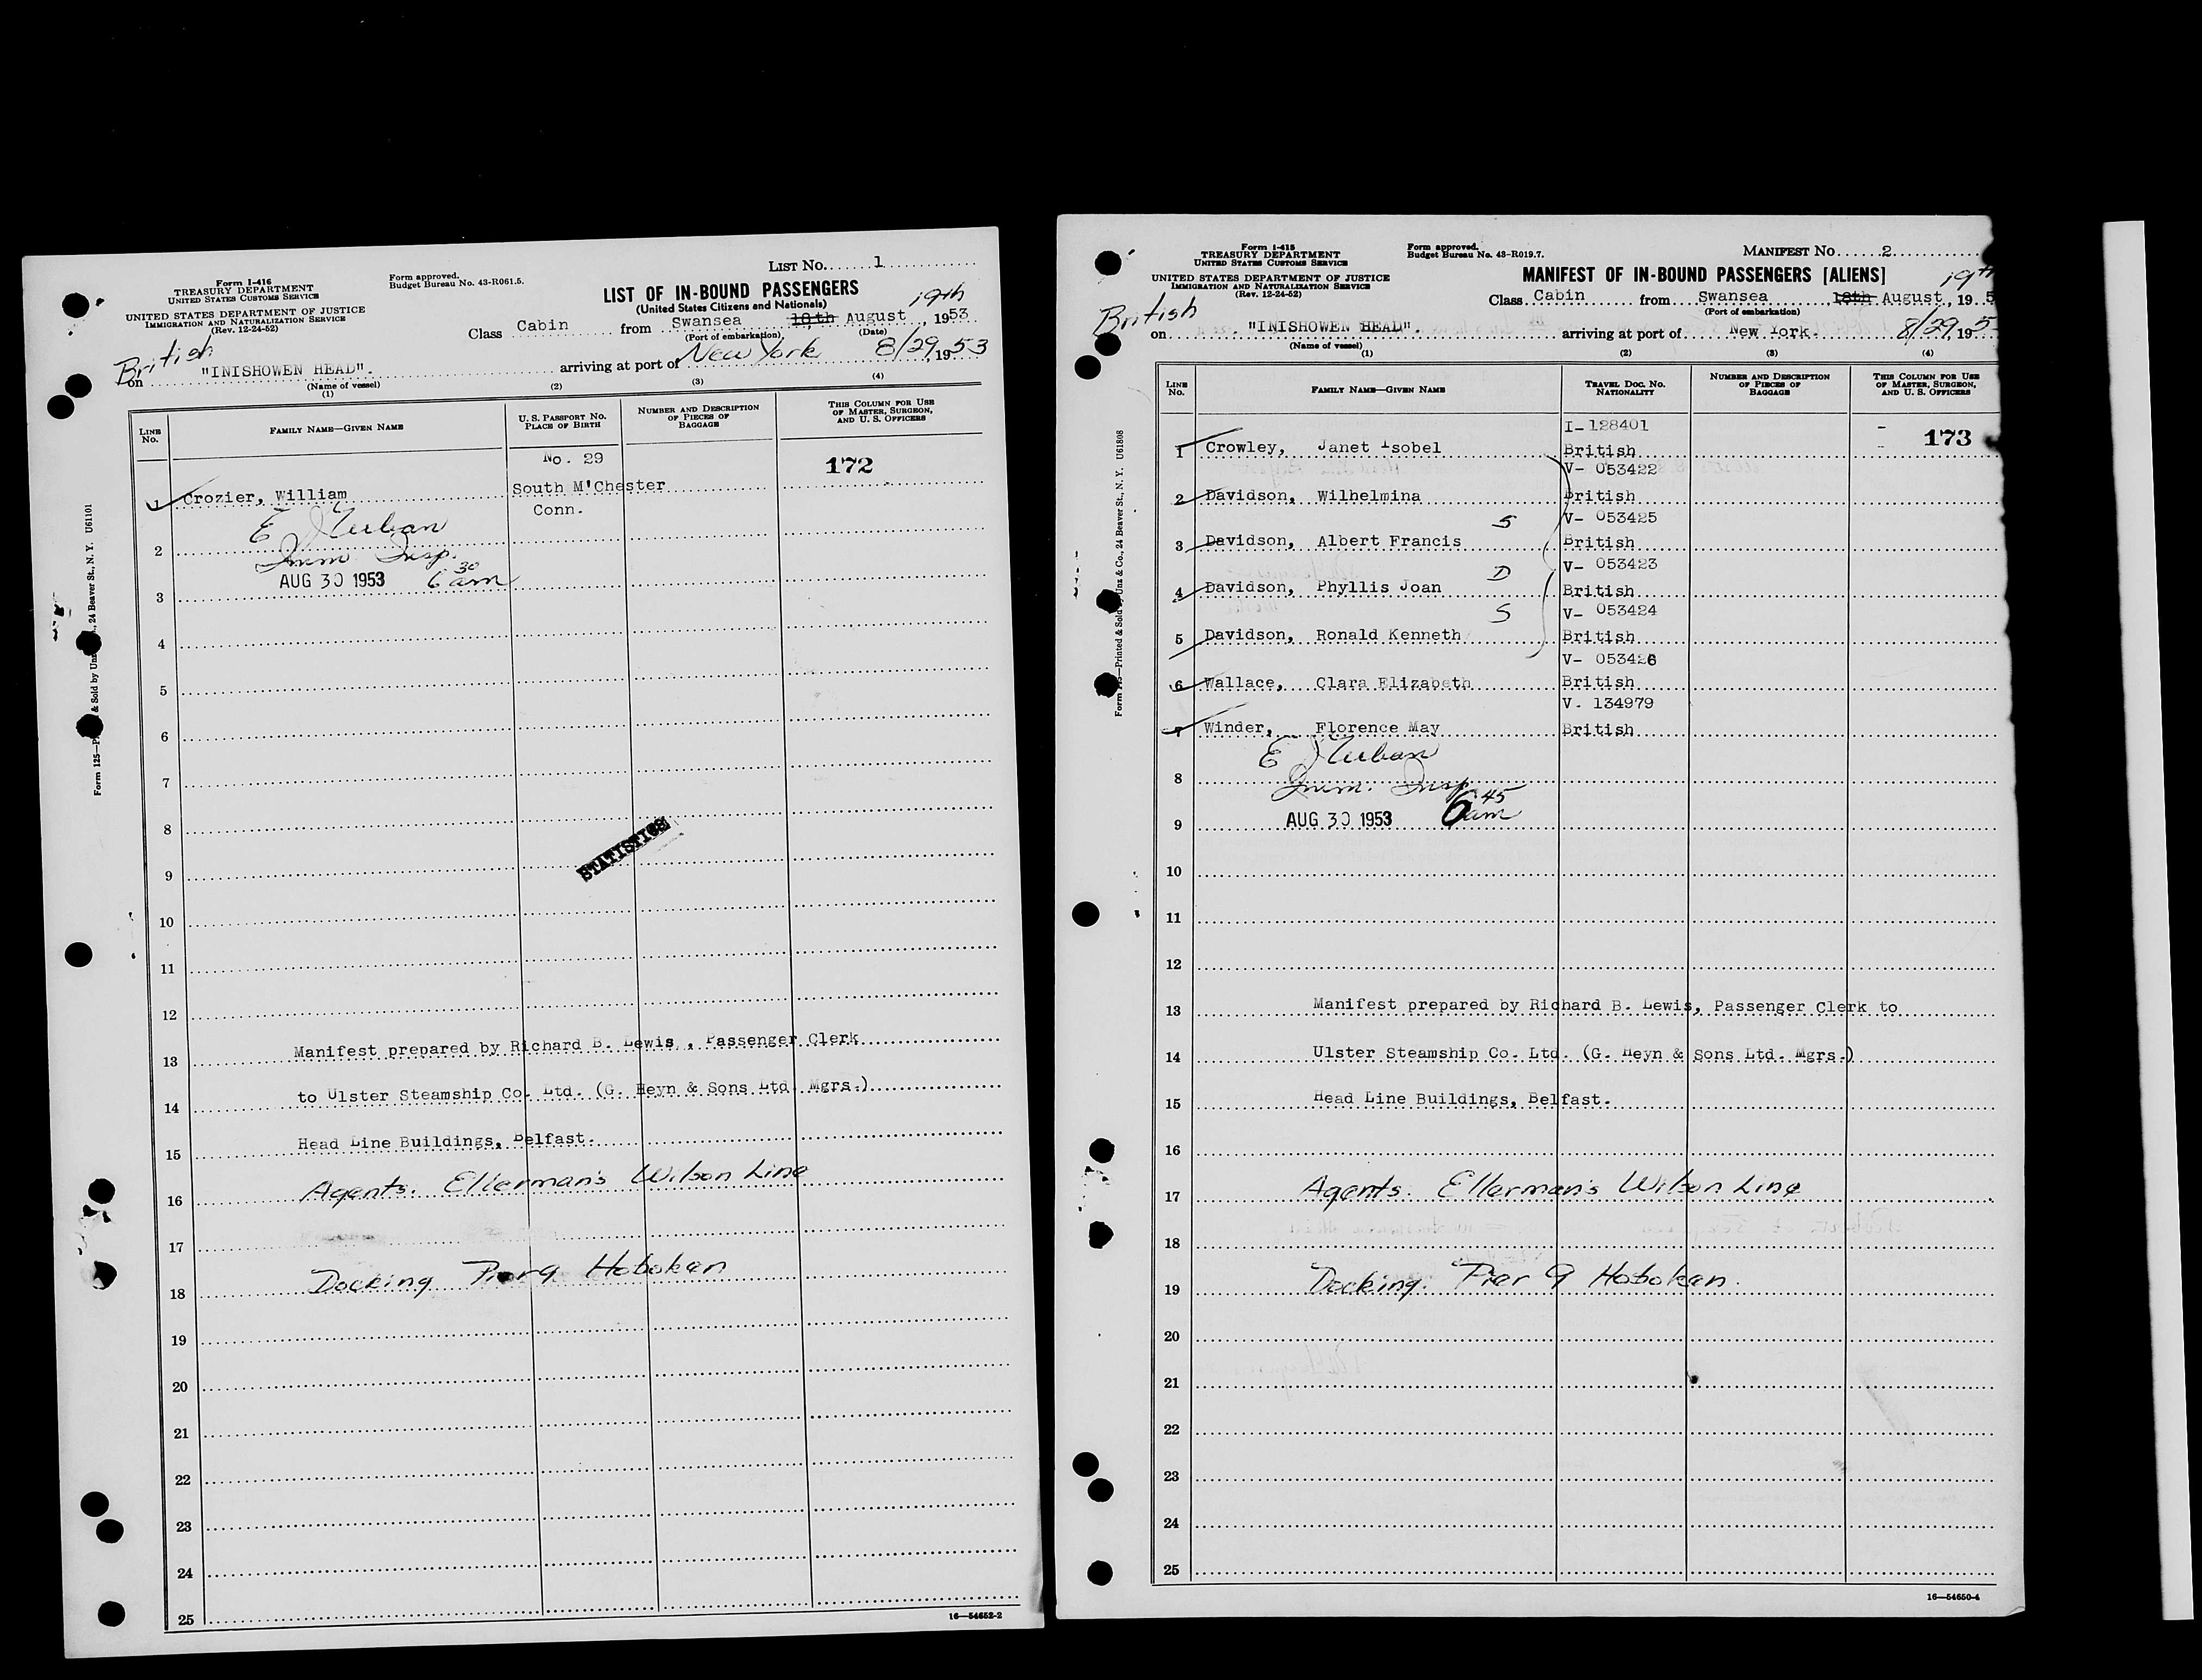 Form I-416
TREASURY DEPARTMENT
UNITED STATES CUSTOMS SERVICE
UNITED STATES DEPARTMENT OF JUSTICE
IMMIGRATION AND NATURALIZATION SERVICE
(Rev. 12-24-52)
Form approved.
Budget Bureau No. 43-R061.5.
LIST NO. 1
LIST OF IN-BOUND PASSENGERS
(United States Citizens and Nationals)
19th
Class Cabin from Swansea 18th August, 1953
(Port of embarkation) (Date)
British
on "INISHOWEN HEAD". arriving at port of New York 8/29, 1953
(Name of vessel)
(1) (2) (3) (4)
LINE NO.
FAMILY NAME—GIVEN NAME
U. S. PASSPORT NO.
PLACE OF BIRTH
NUMBER AND DESCRIPTION OF PIECES OF BAGGAGE
THIS COLUMN FOR USE OF MASTER, SURGEON, AND U. S. OFFICERS
No. 29
172
1 Crozier, William South M'Chester
Conn.
E
2 Imm Insp.
AUG 30 1953 6 30 am
3
4
5
6
7
8
STATISTICS
9
10
11
12
13 Manifest prepared by Richard B. Lewis, Passenger Clerk
14 to Ulster Steamship Co. Ltd. (G. Heyn & Sons Ltd. Mgrs.)
15 Head Line Buildings, Belfast.
16 Agents. Ellerman's Wilson Line
17
18 Docking Pier 9 Hoboken
19
20
21
22
23
24
25
16—54652-2
24 Beaver St., N. Y. U61101
Form I-415
TREASURY DEPARTMENT
UNITED STATES CUSTOMS SERVICE
UNITED STATES DEPARTMENT OF JUSTICE
IMMIGRATION AND NATURALIZATION SERVICE
(Rev. 12-24-52)
Form approved.
Budget Bureau No. 43-R019.7.
MANIFEST NO. 2
MANIFEST OF IN-BOUND PASSENGERS [ALIENS]
19th
Class Cabin from Swansea 18th August, 195
(Port of embarkation)
British
on "INISHOWEN HEAD". arriving at port of New York. 8/29, 195
(Name of vessel)
(1) (2) (3) (4)
LINE NO.
FAMILY NAME—GIVEN NAME
TRAVEL DOC. NO.
NATIONALITY
NUMBER AND DESCRIPTION OF PIECES OF BAGGAGE
THIS COLUMN FOR USE OF MASTER, SURGEON, AND U. S. OFFICERS
I-128401
173
1 Crowley, Janet Isobel British
V- 053422
2 Davidson, Wilhelmina British
S V- 053425
3 Davidson, Albert Francis British
D V- 053423
4 Davidson, Phyllis Joan British
S V- 053424
5 Davidson, Ronald Kenneth British
V- 053426
6 Wallace, Clara Elizabeth British
V. 134979
7 Winder, Florence May British
E
8 Imm. Insp.
9 AUG 30 1953 6 45 am
10
11
12
13 Manifest prepared by Richard B. Lewis, Passenger Clerk to
14 Ulster Steamship Co. Ltd. (G. Heyn & Sons Ltd. Mgrs.)
15 Head Line Buildings, Belfast.
16
17 Agents. Ellerman's Wilson Line
18
19 Docking. Pier 9 Hoboken.
20
21
22
23
24
25
16—54650-4
24 Beaver St., N. Y. U61808